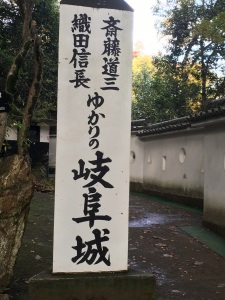 斎藤道三
織田信長
ゆかりの
岐阜城